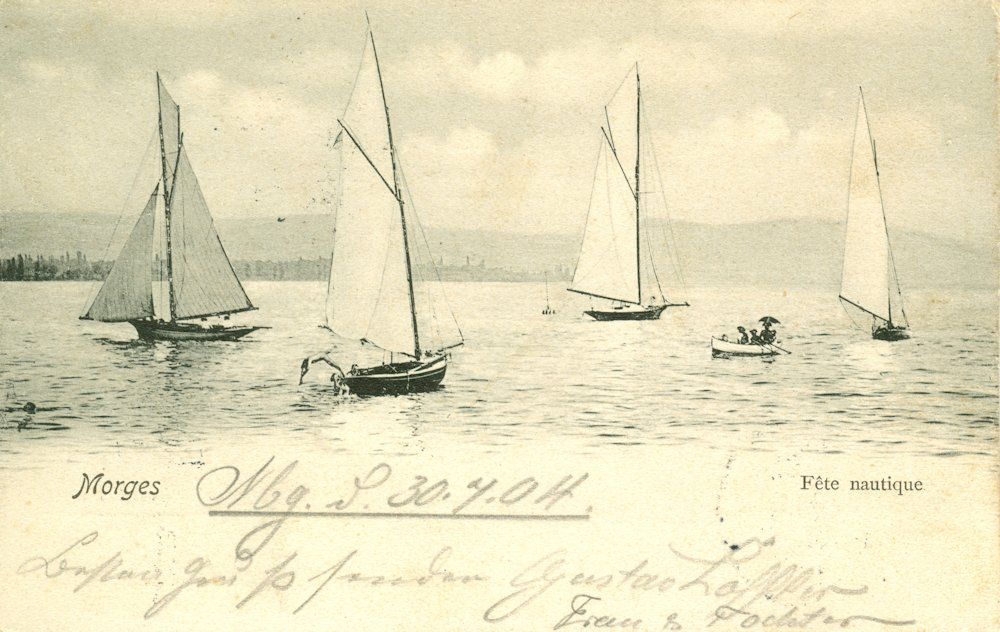 Morges
Mg. d. 30.7.04
Fête nautique
Besten Gruß senden Gustav
Frau & Tochter